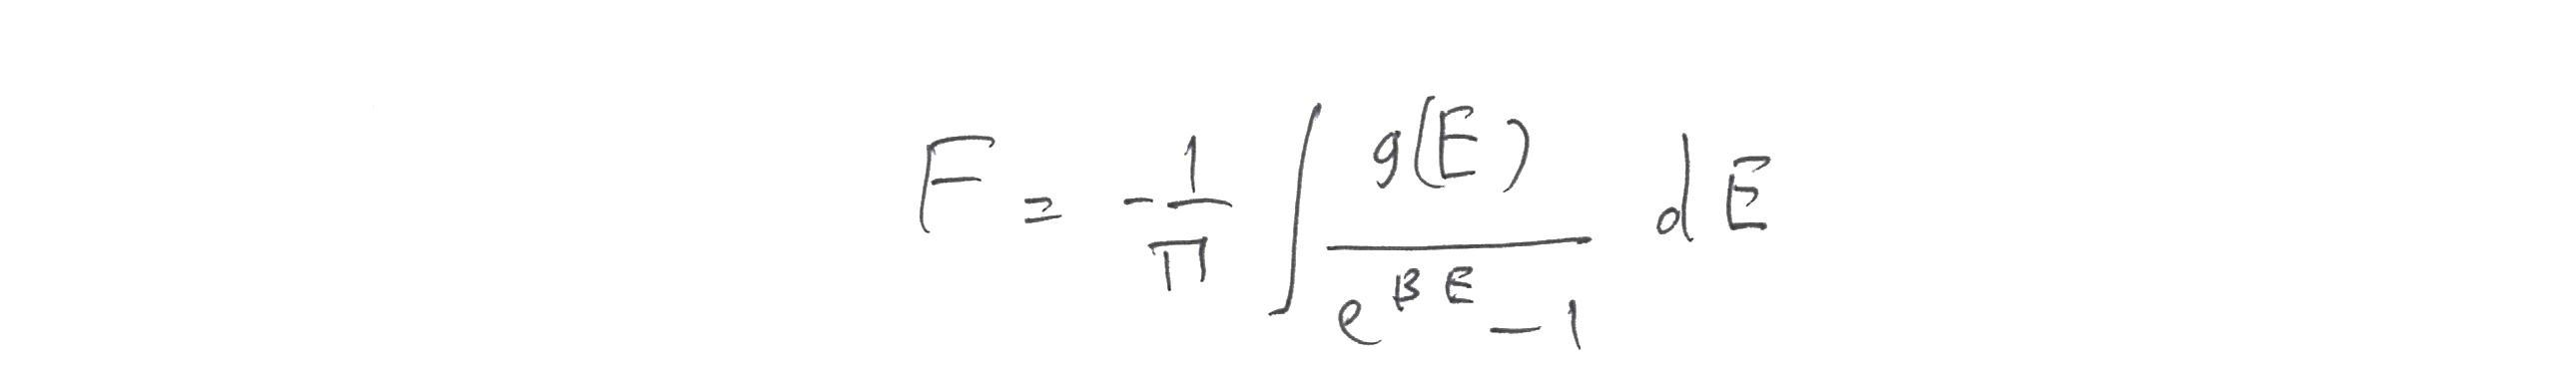 F = -\frac{1}{\pi} \int \frac{g(E)}{e^{\beta E} - 1} dE